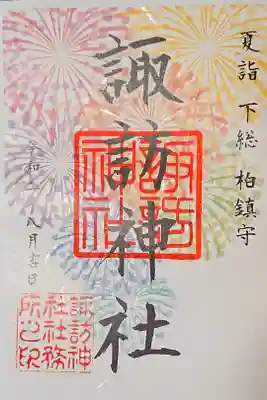 夏詣 下総 柏鎮守
諏訪神社
諏訪
神社
令和二 八月吉日
諏訪神
社社務
所之印